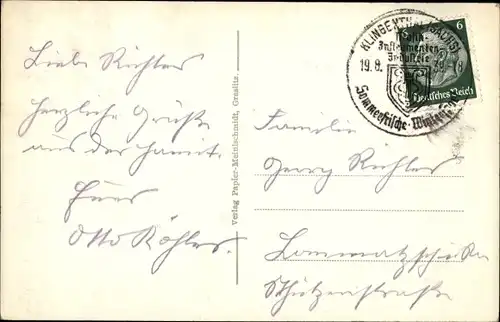 Liebe Richters
herzliche Grüße
aus der
Euer
Otto Köhler.
Verlag Papier-Meinlschmidt, Graslitz.
KLINGENTHAL (SACHS)
Musik-
Instrumenten
Industrie
19.8.
Sommerfrische - Wintersp
6
Deutsches Reich
Familie
Georg Richter
Lommatzsch
Schützenstraße